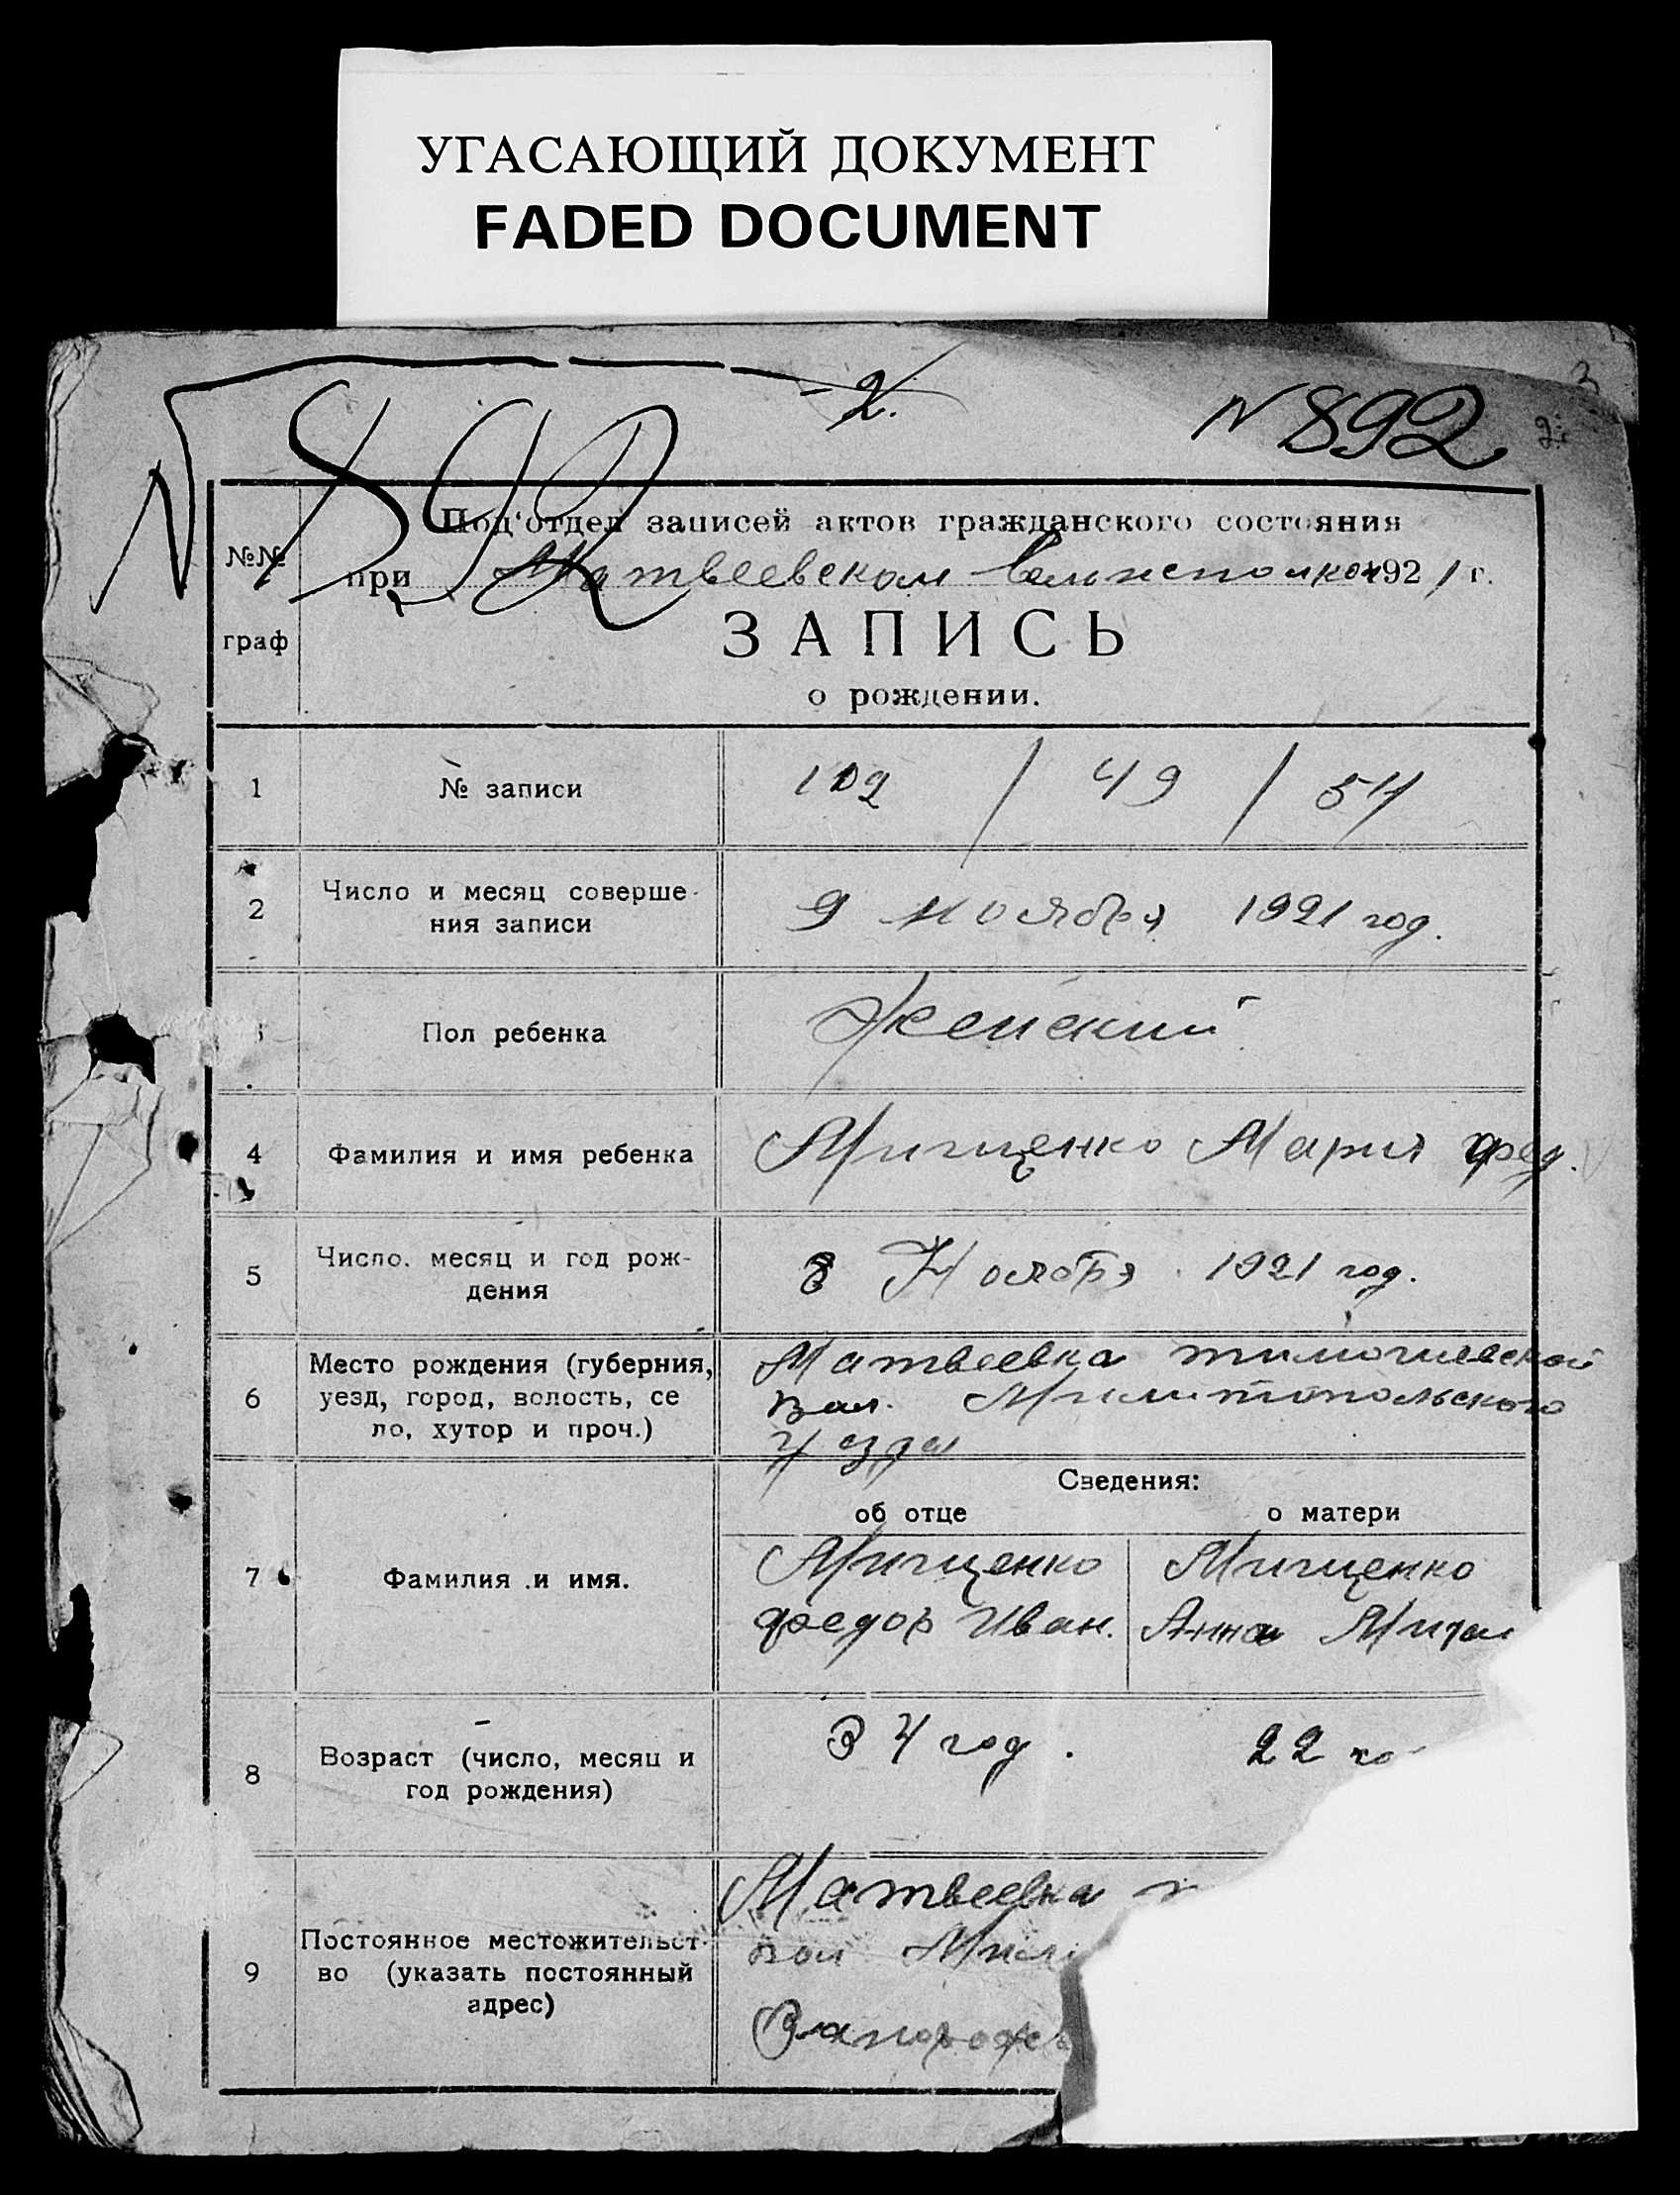 УГАСАЮЩИЙ ДОКУМЕНТ
FADED DOCUMENT
- 2.
N 892
N 892
Под'отдел записей актов гражданского состояния
№№
при Матвеевском Волисполком 1921 г.
граф
ЗАПИСЬ
о рождении.
1 № записи 102 / 49 / 54
2 Число и месяц соверше-
ния записи 9 Ноября 1921 год.
Пол ребенка Женский
4 Фамилия и имя ребенка Мищенко Мария Фед.
5 Число, месяц и год рож-
дения 8 Ноября 1921 год.
6 Место рождения (губерния,
уезд, город, волость, се
ло, хутор и проч.)
Матвеевка
вол. Милитопольского
Уезда
Сведения:
об отце о матери
7 Фамилия и имя.
Мищенко Мищенко
Федор Иван. Анна
8 Возраст (число, месяц и
год рождения)
34 год. 22
9 Постоянное местожительст-
во (указать постоянный
адрес)
Матвеевка
вол Мили
Запорож